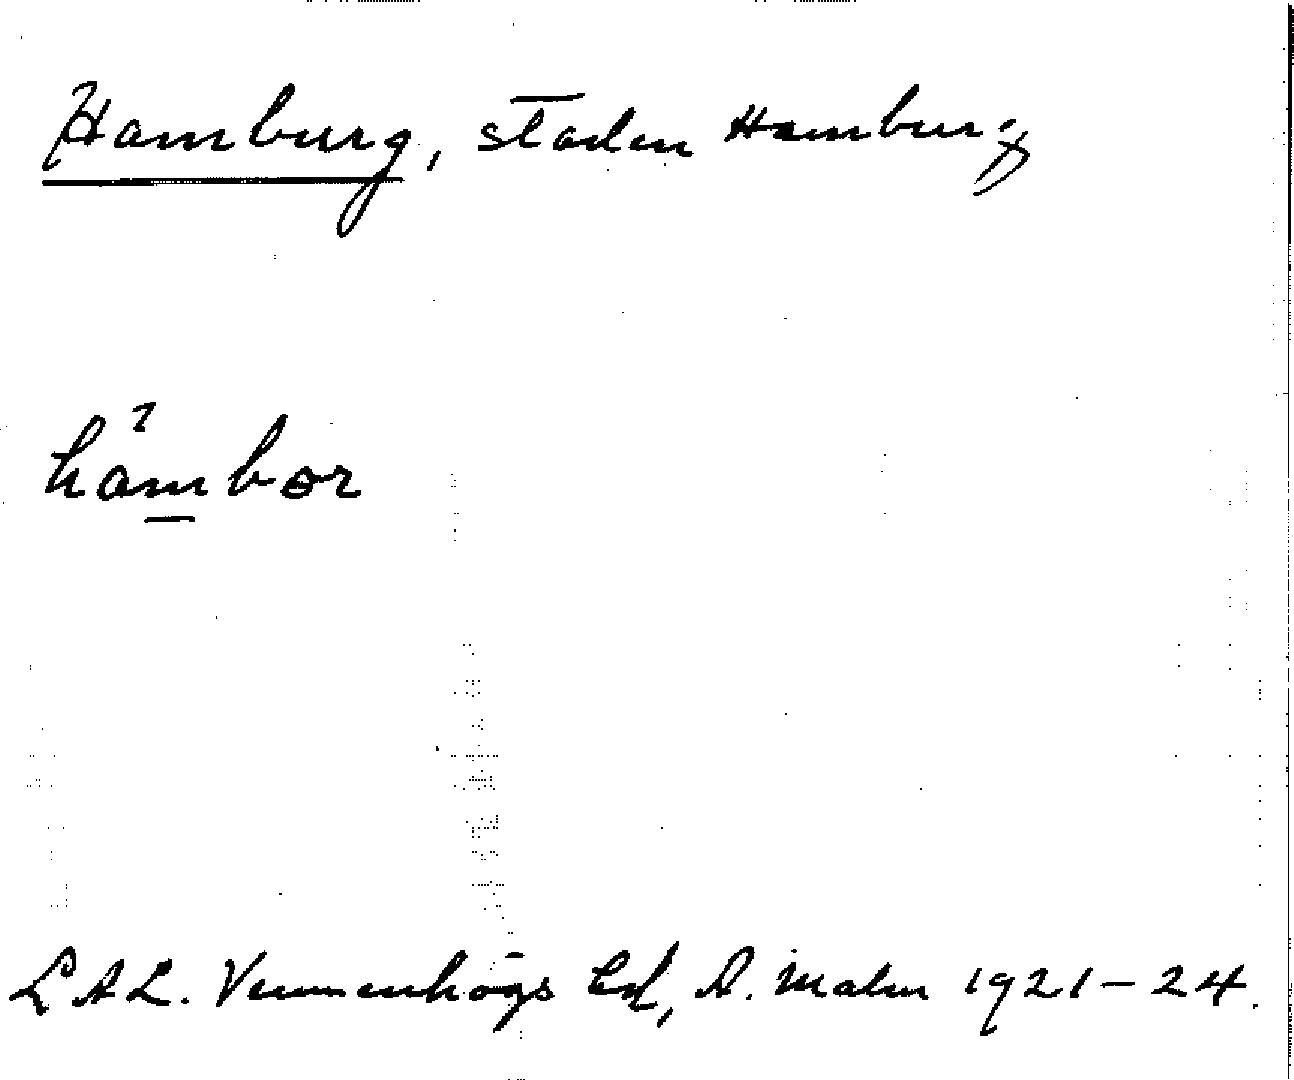 Hamburg, staden Hamburg
hambor
L.A.L. Vemmenhögs hd, A. Malm 1921–24.